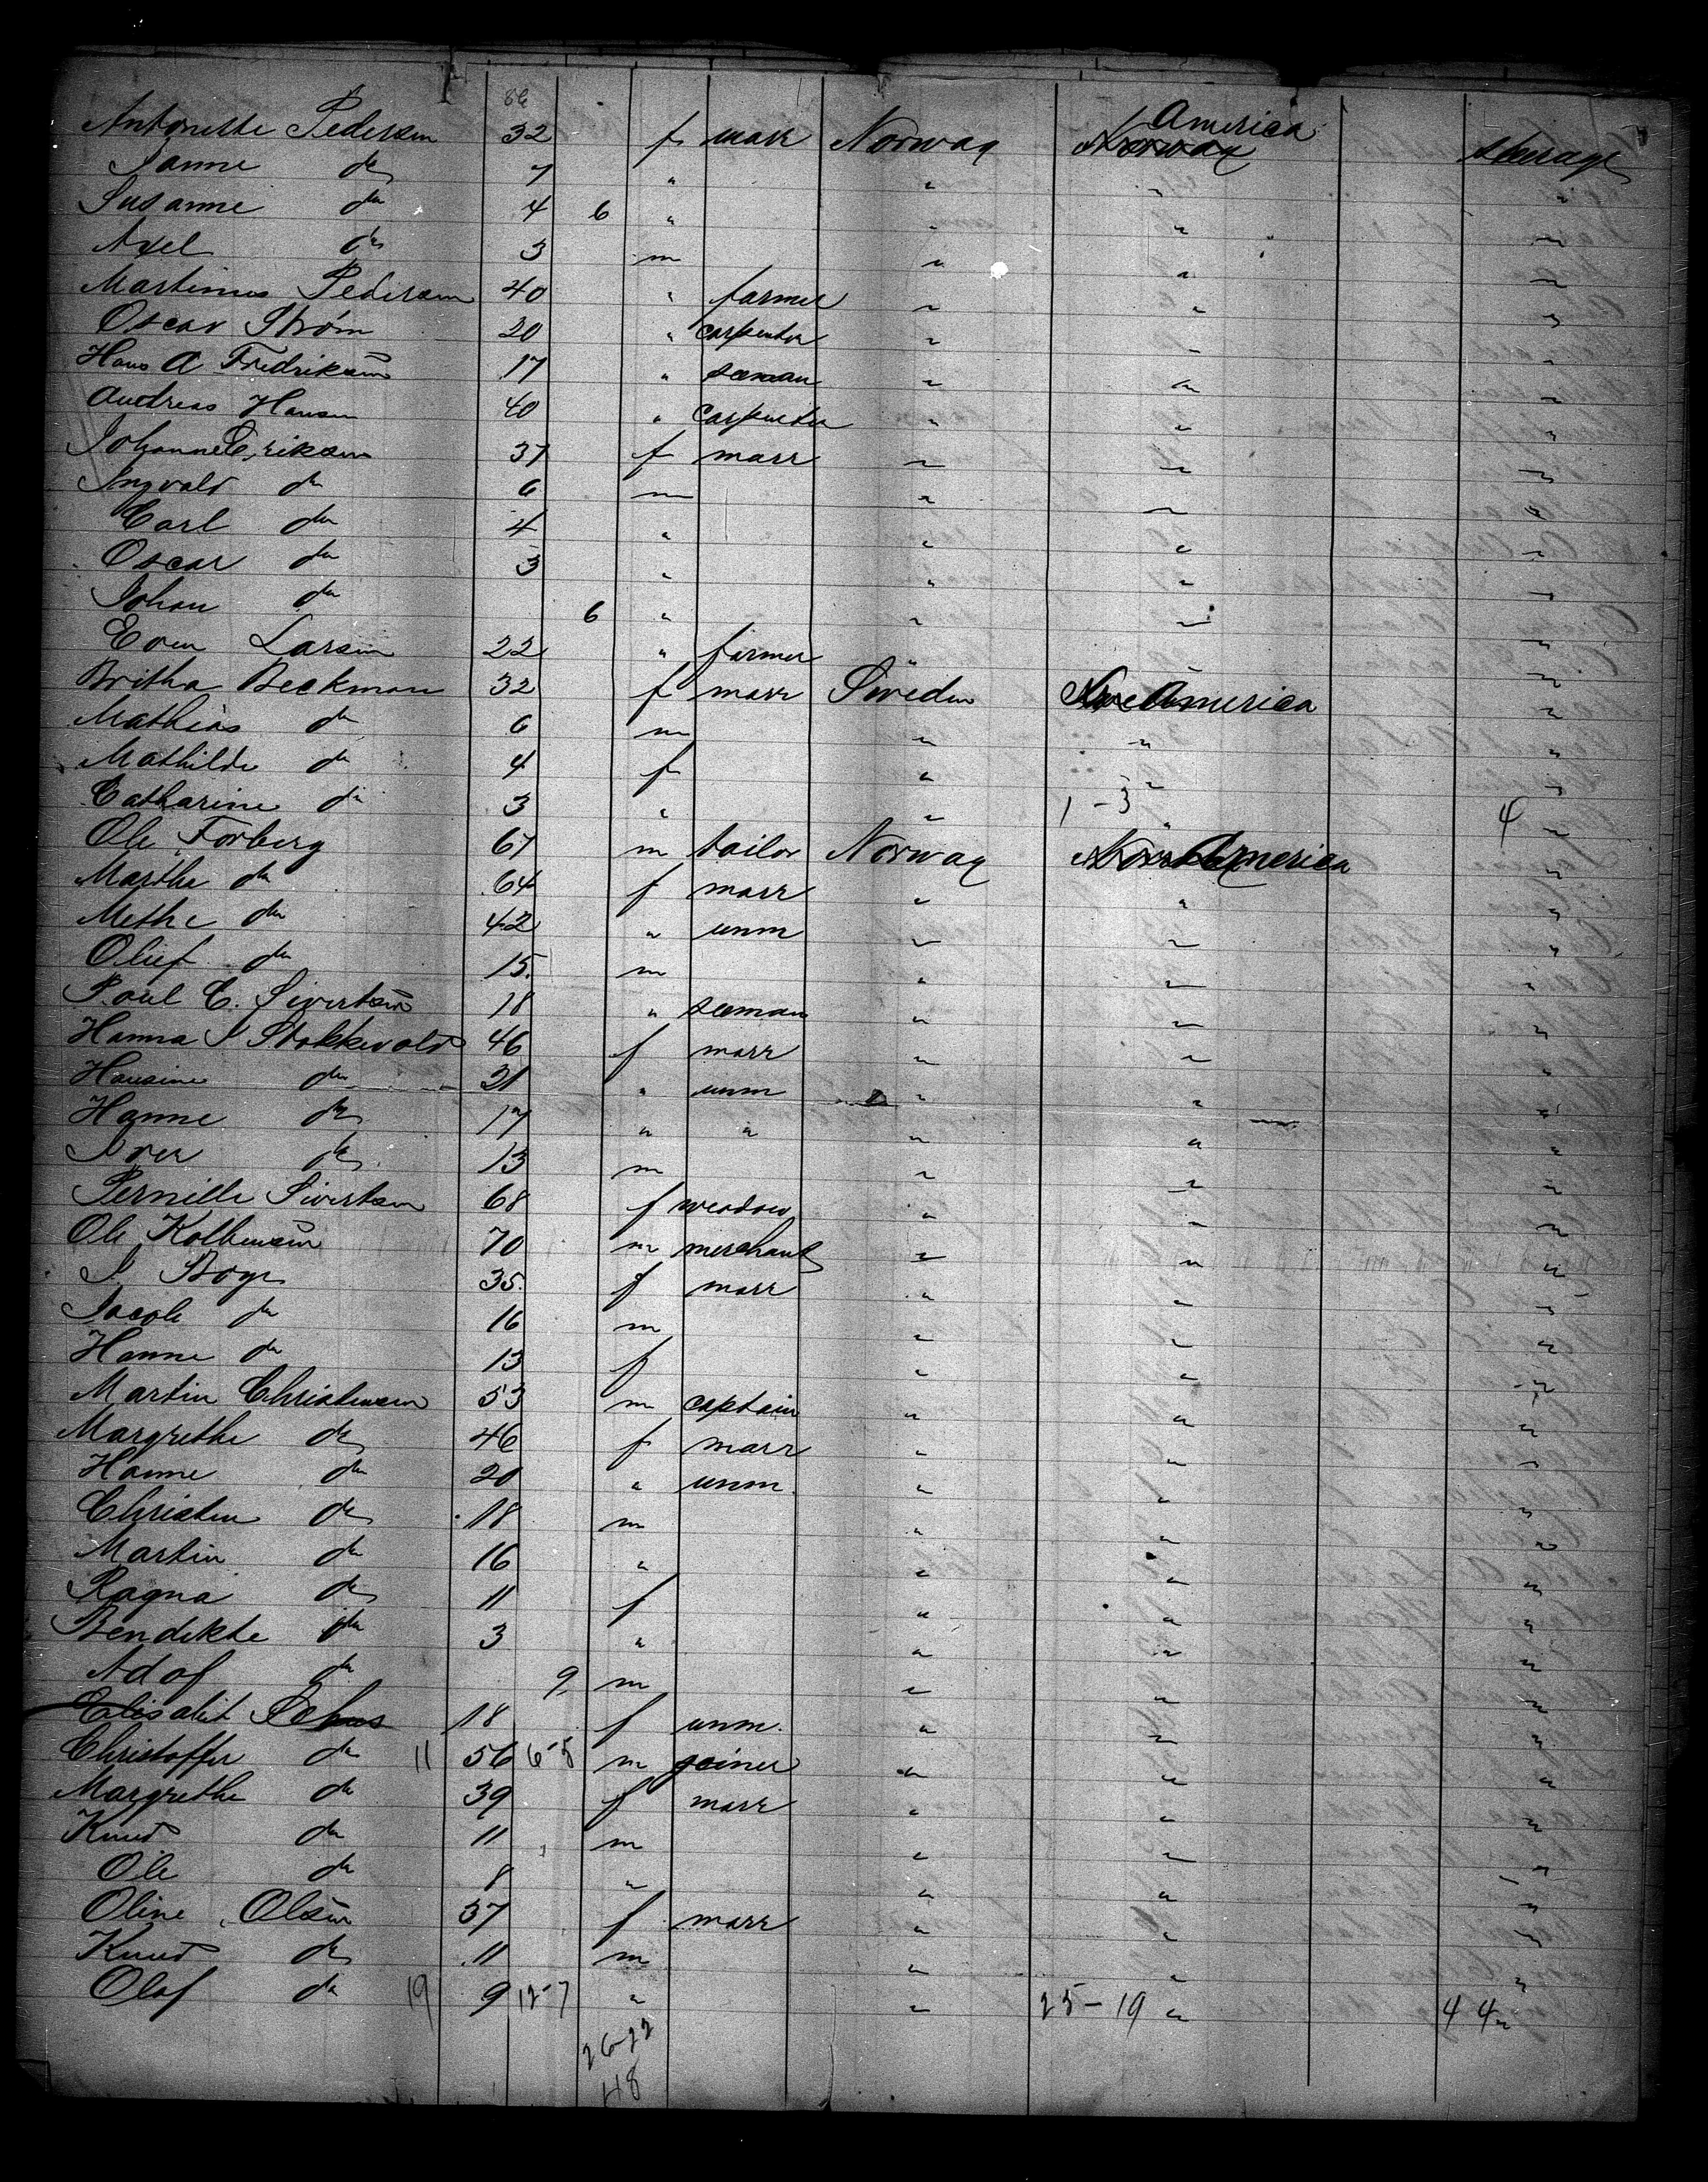 86
Antonette Pedersen 32 f marr Norway Norway America steerage
Hanne do 7 " " " "
Susanne do 4 6 " " " "
Axel do 3 m " " "
Martinus Pedersen 40 " farmer " " "
Oscar Strøm 20 " carpenter " " "
Hans A Fredriksen 17 " seeman " " "
Andreas Hansen 40 " carpenter " " "
Johanne Eriksen 37 f marr " " "
Ingvald do 6 m " " "
Carl do 4 " " " "
Oscar do 3 " " " "
Johan do 6 " " " "
Even Larsen 22 " farmer " " "
Britha Beckman 32 f marr Sweden America "
Mathias do 6 m " " "
Mathilde do 4 f " " "
Catharine do 3 " " 1-3 " 4 "
Ole Forberg 67 m tailor Norway America "
Marthe do 64 f marr " " "
Methe do 42 " unm " " "
Oluf do 15 m " " "
Paul C. Sivertsen 18 " seeman " " "
Hanna J Stokkevold 46 f marr " " "
Hansine do 21 " unm " " "
Hanne do 17 " " " " "
Iver do 13 m " " "
Pernille Sivertsen 68 f weadow " " "
Ole Kolbensen 70 m merchant " " "
J Boge 35 f marr " " "
Jacob do 16 m " " "
Hanne do 13 f " " "
Martin Christensen 53 m captain " " "
Margrethe do 46 f marr " " "
Hanne do 20 " unm " " "
Christen do 18 m " " "
Martin do 16 " " " "
Ragna do 11 f " " "
Bendikte do 3 " " " "
Adof do 9 m " " "
Elisabit 18 f unm. " " "
Christoffer do 11 56 6-5 m joiner " " "
Margrethe do 39 f marr " " "
Knud do 11 m " " "
Ole do 8 " " " "
Oline Olsen 37 f marr " " "
Knud do 11 m " " "
Olaf do 19 9 12-7 " " 25-19 " 44 "
26-22
48